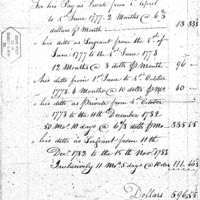 for his Pay as Private from 5 April
to 4th June 1777. 2 Months @ 6⅔
dollars p Month 13 33⅓
his ditto as Sergeant from the 5th of
June 1777 to the 1st June 1778
12 Months @ 8 dolls p Month 96
his ditto from 1st June to 4th October
1778. 4 Months @ 10 dolls 40
his ditto as Private from 5th October
1778 to the 11th December 1782
50 Mos. 10 days @ 6⅔ dolls p Mo.
his ditto as Sergeant from 11th
Decr 1782 to the 15th Novr 1783
Inclusively 11 Mos. 5 days @ 10 dolrs 111.66⅔
Dollars